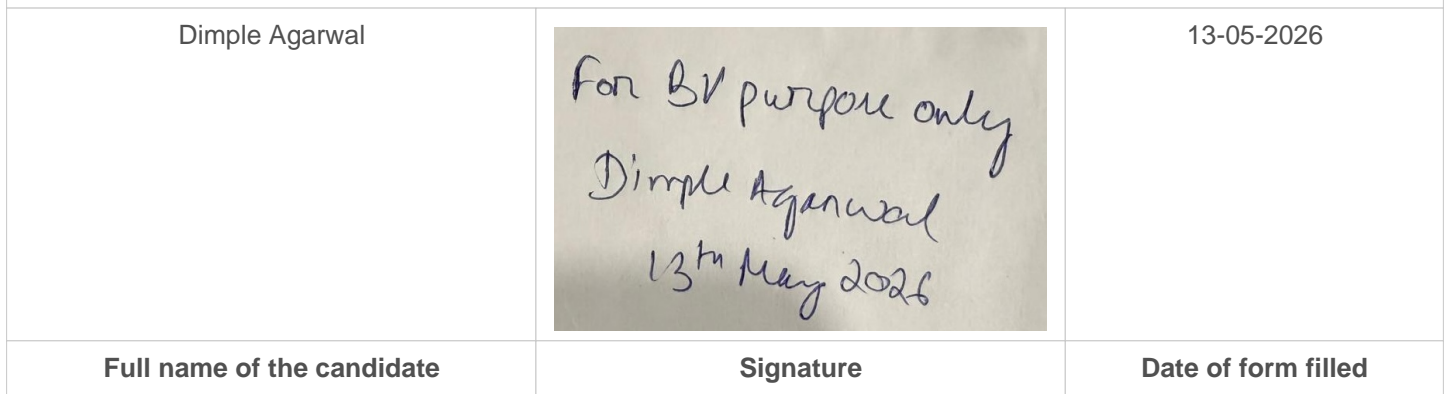 Dimple Agarwal
For BV purpose only
Dimple Agarwal
13th May 2026
13-05-2026
Full name of the candidate
Signature
Date of form filled